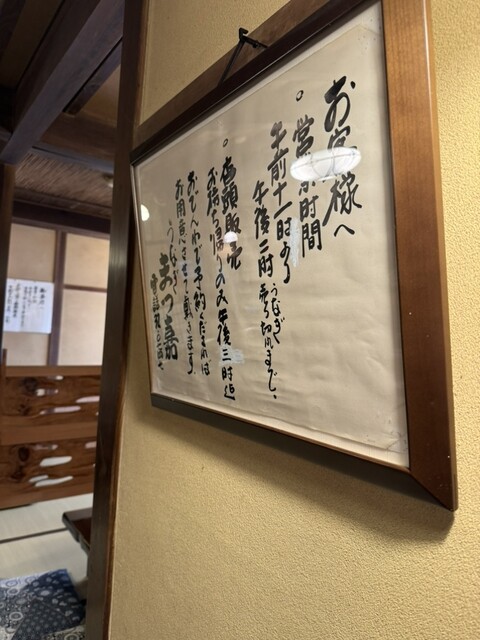 お客様へ
○営業時間
午前十一時より
午後二時 うなぎ売り切れまで。
○店頭販売
お持ち帰りのみ 午後三時迄
おでんわで予約くだされば
お用意させて戴きます。
うなぎ
まつ嘉